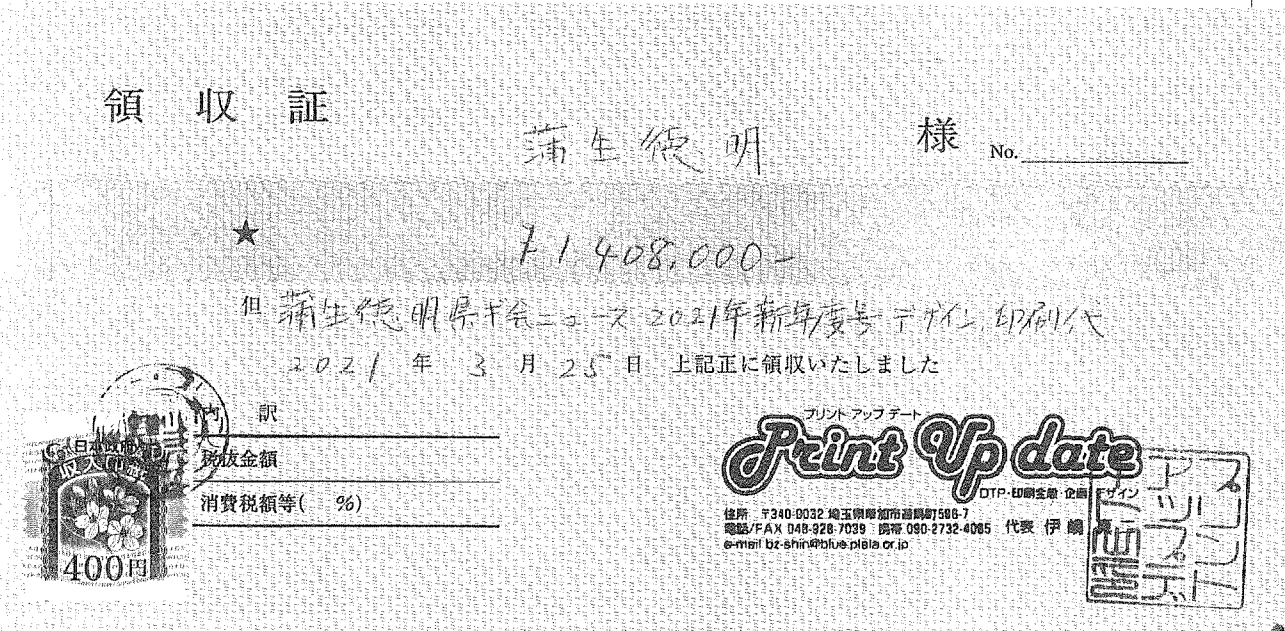 領収証
蒲生徳明 様 No.
★ ¥1,408,000-
但 蒲生徳明県議会ニュース2021年新年度号デザイン、印刷代
2021年3月25日 上記正に領収いたしました
内訳
税抜金額
消費税額等( %)
日本政府
収入印紙
400円
プリント アップ デート
Print Up date
DTP・印刷全般・企画 デザイン
住所 〒340-0032 埼玉県草加市遊馬町598-7
電話/FAX 048-928-7039 携帯 090-2732-4085 代表 伊嶋
e-mail bz-shin@blue.plala.or.jp